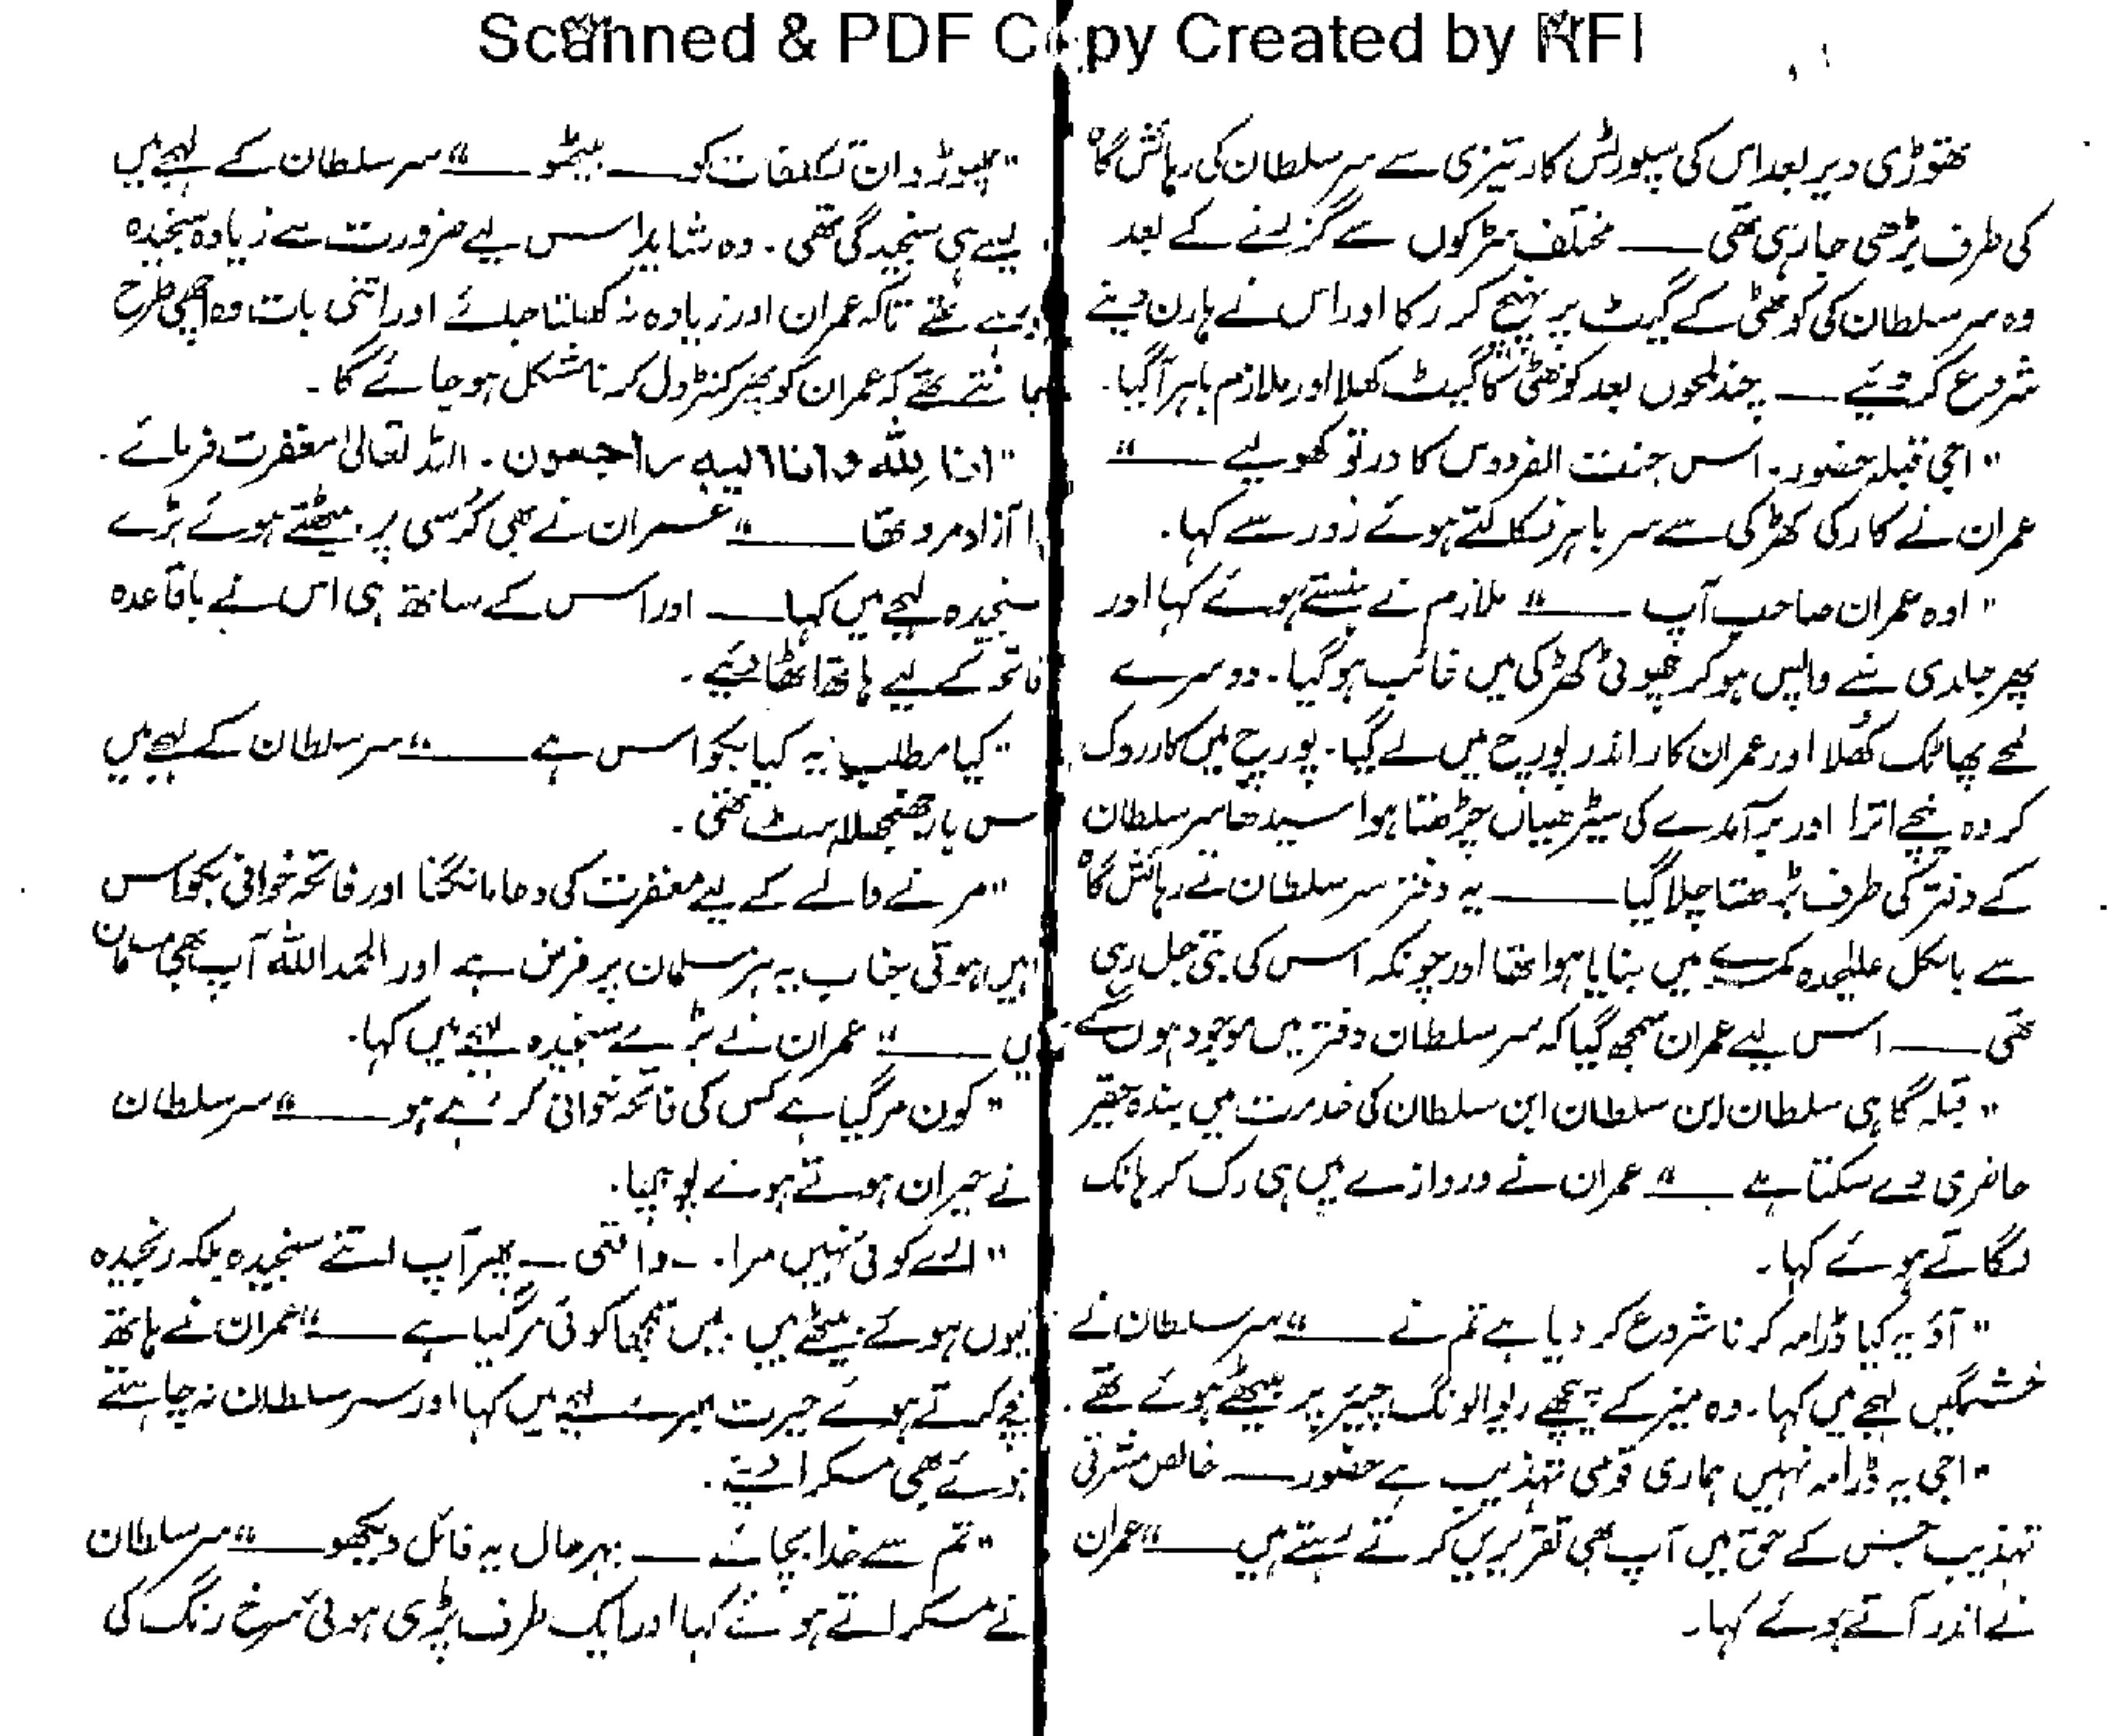 Scanned & PDF Copy Created by RFI
تھوڑی دیر بعد اس کی سپورٹس کار تیزی سے سر سلطان کی رہائش گاہ
کی طرف بڑھی جا رہی تھی ــــ مختلف سڑکوں سے گزرنے کے بعد
وہ سر سلطان کی کوٹھی کے گیٹ پر پہنچ کر رکا اور اس نے ہارن دینے
شروع کر دیئے ــــ چند لمحوں بعد کوٹھی کا گیٹ کھلا اور ملازم باہر آگیا۔
"اجی قبلہ حضور۔ اس جنت الفردوس کا در تو کھولیے ــــ"
عمران نے کار کی کھڑکی سے سر باہر نکالتے ہوئے زور سے کہا۔
"اوہ عمران صاحب آپ ــــ" ملازم نے ہنستے ہوئے کہا اور
پھر جلدی سے واپس ہو کر چھوٹی کھڑکی میں غائب ہو گیا۔ دوسرے
لمحے پھاٹک کھلا اور عمران کار اندر پورچ میں لے گیا۔ پورچ میں کار روک
کر وہ نیچے اترا اور برآمدے کی سیڑھیاں چڑھتا ہوا سیدھا سر سلطان
کے دفتر کی طرف بڑھتا چلا گیا ــــ یہ دفتر سر سلطان نے رہائش گاہ
سے بالکل علیحدہ کمرے میں بنایا ہوا تھا اور چونکہ اس کی بتی جل رہی
تھی ــــ اس لیے عمران سمجھ گیا کہ سر سلطان دفتر میں موجود ہوں گے۔
"قبلہ گاہی سلطان ابن سلطان ابن سلطان کی خدمت میں بندہ حقیر
حاضری دے سکتا ہے ــــ" عمران نے دروازے میں ہی رک کر ہانک
لگاتے ہوئے کہا۔
"آؤ یہ کیا ڈرامہ کرنا شروع کر دیا ہے تم نے ــــ" سر سلطان نے
خشمگیں لہجے میں کہا۔ وہ میز کے پیچھے ریوالونگ چیئر پر بیٹھے ہوئے تھے۔
"اجی یہ ڈرامہ نہیں ہماری قومی تہذیب ہے حضور ــــ خالص مشرقی
تہذیب جس کے حق میں آپ بھی تقریریں کرتے رہتے ہیں ــــ" عمران
نے اندر آتے ہوئے کہا۔
"چھوڑو ان تکلفات کو ــــ بیٹھو ــــ" سر سلطان کے لہجے میں
ویسے ہی سنجیدگی تھی۔ وہ شاید اس لیے ضرورت سے زیادہ سنجیدہ
رہتے تھے تاکہ عمران اور زیادہ نہ کھلتا جائے اور اتنی بات وہ اچھی طرح
جانتے تھے کہ عمران کو پھر کنٹرول کرنا مشکل ہو جائے گا۔
"انا للہ و انا الیہ راجعون۔ اللہ تعالیٰ مغفرت فرمائے۔
آزاد مرد تھا ــــ" عمران نے بھی کرسی پر بیٹھتے ہوئے بڑے
سنجیدہ لہجے میں کہا ــــ اور اس کے ساتھ ہی اس نے باقاعدہ
فاتحہ کے لیے ہاتھ اٹھا دیئے۔
"کیا مطلب یہ کیا بکواس ہے ــــ" سر سلطان کے لہجے میں
اس بار جھنجھلاہٹ تھی۔
"مرنے والے کے لیے مغفرت کی دعا مانگنا اور فاتحہ خوانی بکواس
نہیں ہوتی جناب یہ ہر مسلمان پر فرض ہے اور الحمد اللہ آپ بھی مسلمان
ہیں ــــ" عمران نے بڑے سنجیدہ لہجے میں کہا۔
"کون مر گیا ہے کس کی فاتحہ خوانی کر رہے ہو ــــ" سر سلطان
نے حیران ہوتے ہوئے پوچھا۔
"ارے کوئی نہیں مرا۔ ـ واقعی ـ پھر آپ اتنے سنجیدہ بلکہ رنجیدہ
کیوں ہوئے بیٹھے ہیں۔ میں سمجھا کوئی مر گیا ہے ــــ" عمران نے ہاتھ
نیچے کرتے ہوئے حیرت بھرے لہجے میں کہا اور سر سلطان نہ چاہتے
ہوئے بھی مسکرا دیئے۔
"تم سے خدا بچائے ــــ بہرحال یہ فائل دیکھو ــــ" سر سلطان
نے مسکراتے ہوئے کہا اور ایک طرف پڑی ہوئی سرخ رنگ کی